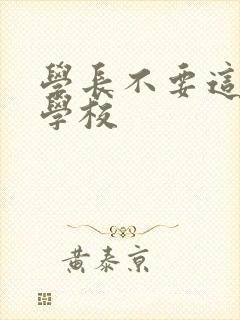 學長不要這
學校
黃泰京